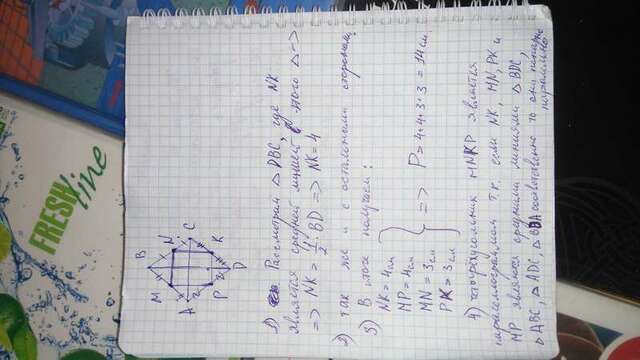 FRESH
line
B
M
N
A
C
P
K
D
1) Рассмотрим △ DBC, где NK
является средней линией этого △ =>
=> NK = 1/2 BD => NK = 4
2) так же и с остальными сторонами
3) В итоге получаем:
NK = 4 см
MP = 4 см
MN = 3 см
PK = 3 см
=> P = 4+4+3+3 = 14 см.
4) четырехугольник MNKP является
параллелограммом т.к. если NK, MN, PK и
MP являются средними линиями △ BDC,
△ ABC, △ ADC, △ BDA соответственно то они попарно
параллельны